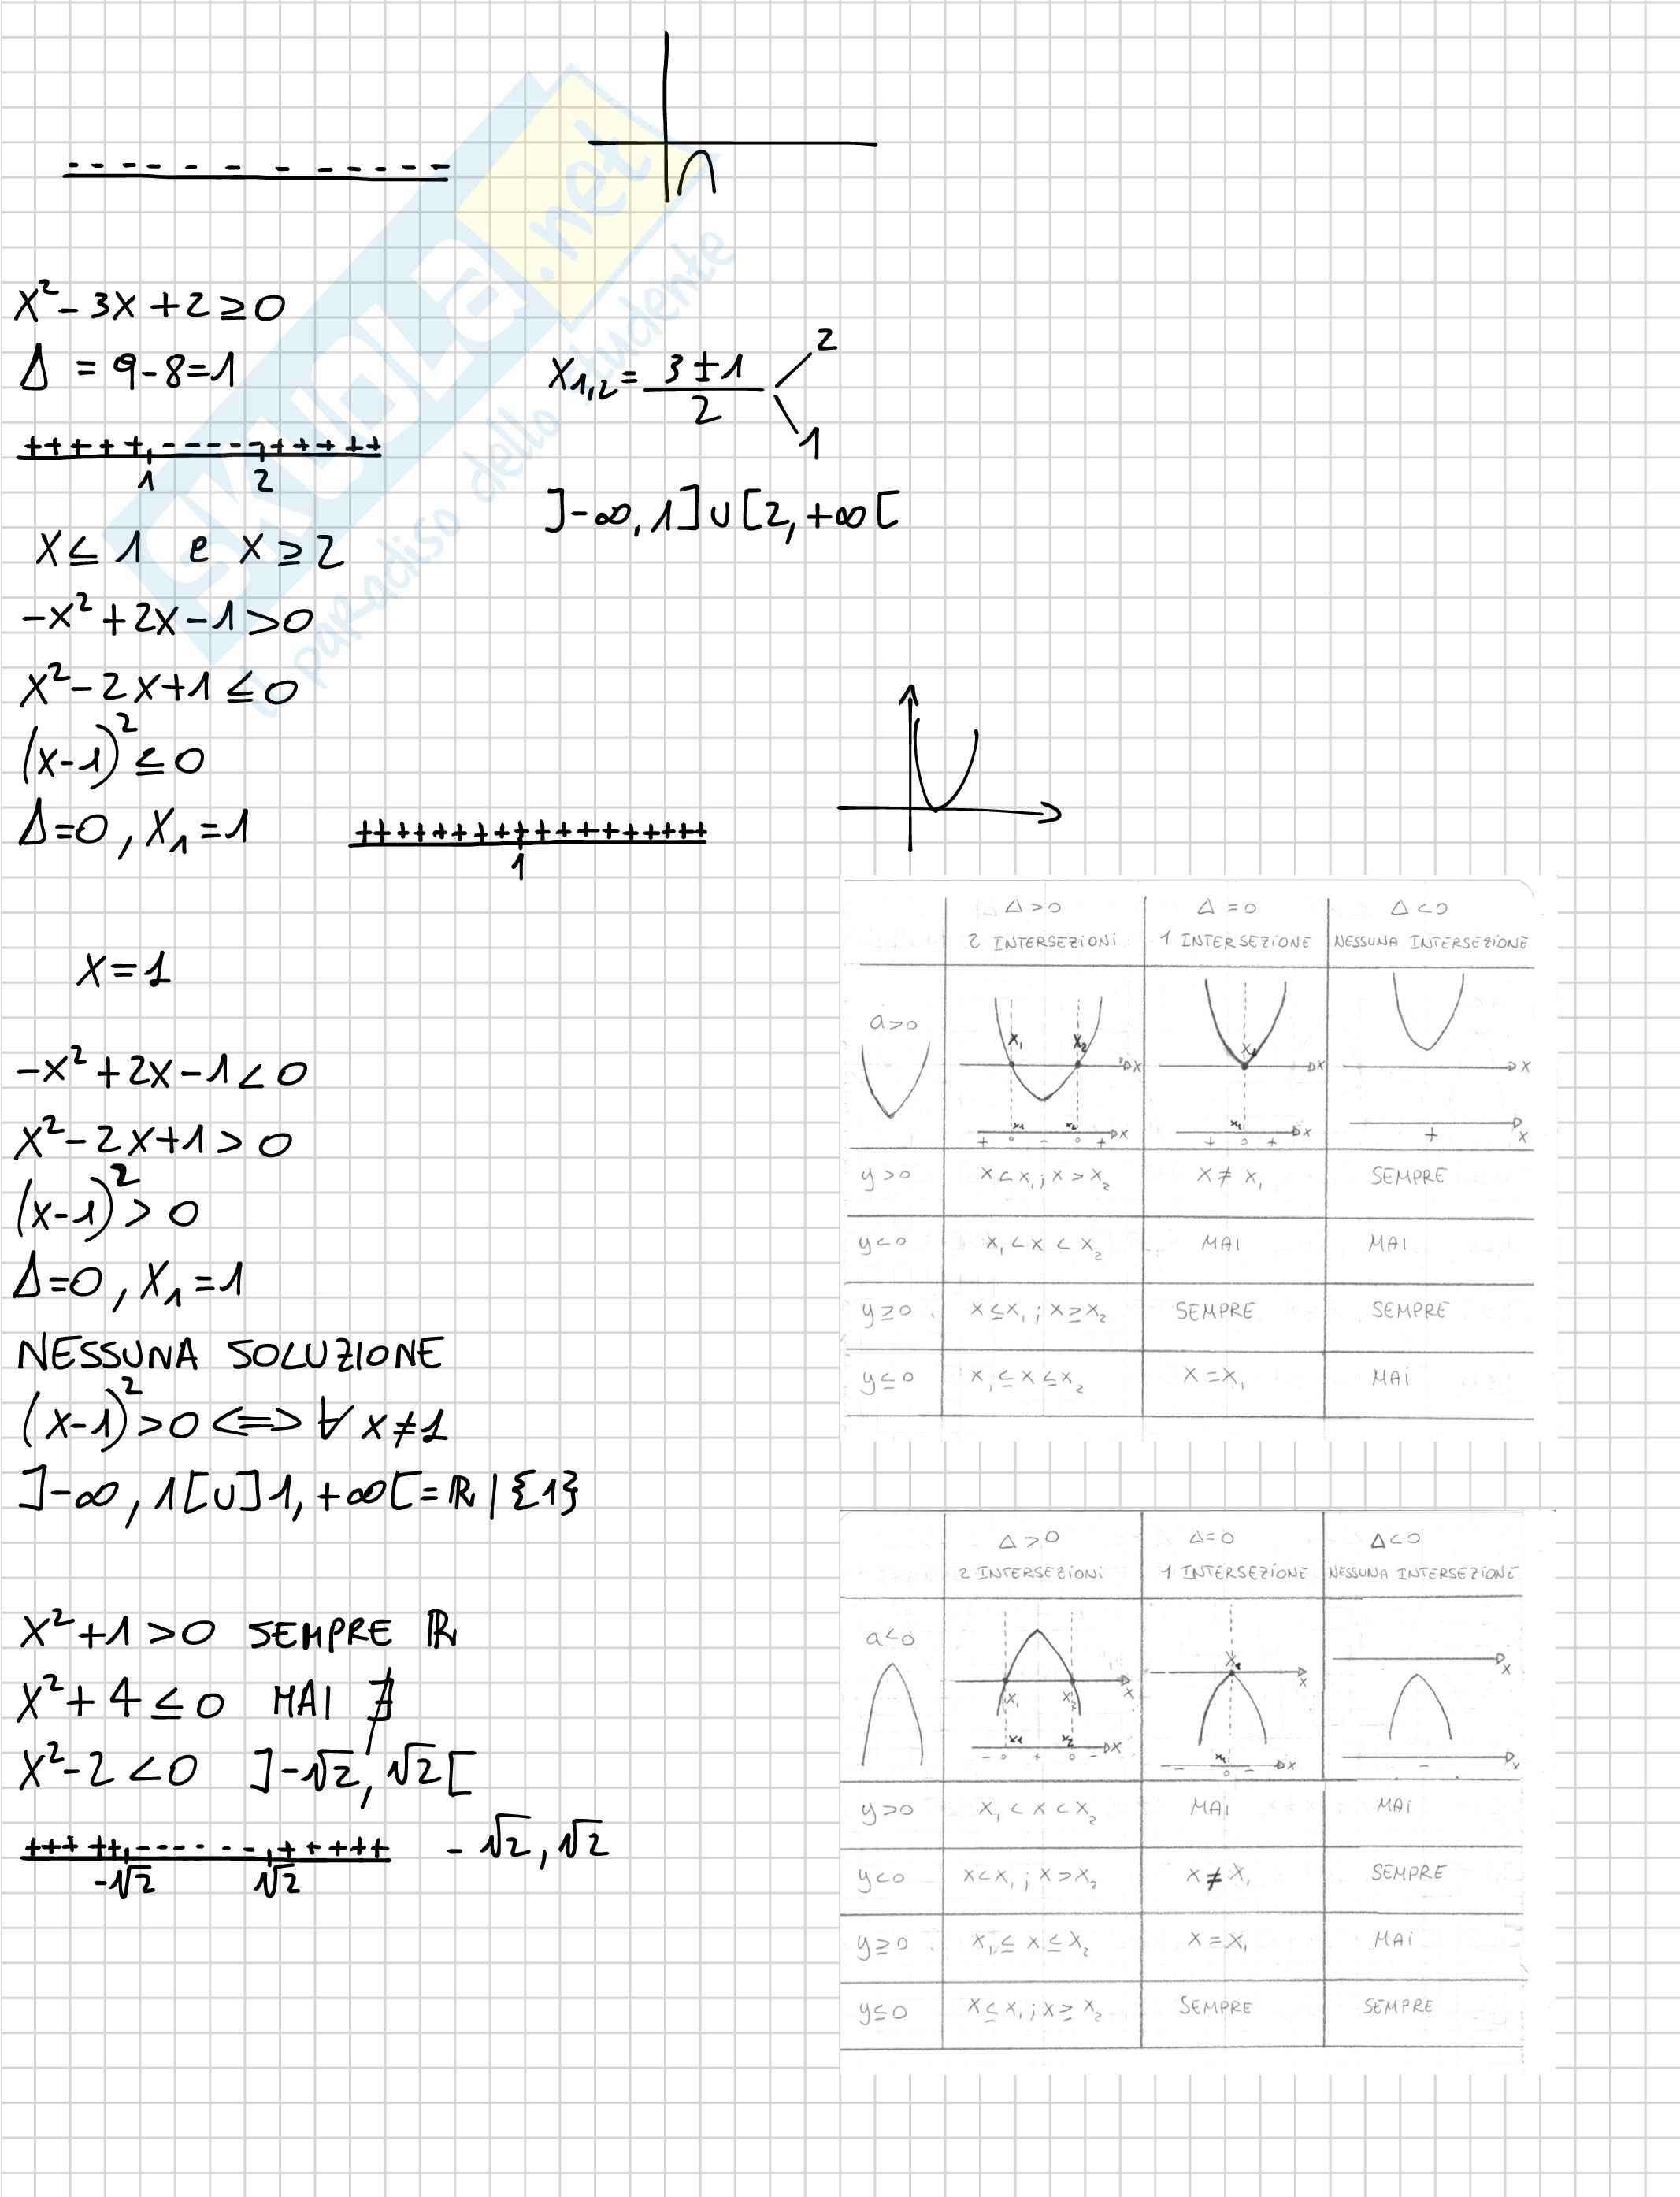 x² - 3x + 2 ≥ 0
Δ = 9 - 8 = 1
x₁,₂ = (3 ± 1)/2 2
1
+++++ ----- +++++
1 2
]-∞, 1] ∪ [2, +∞[
x ≤ 1 e x ≥ 2
-x² + 2x - 1 > 0
x² - 2x + 1 ≤ 0
(x-1)² ≤ 0
Δ=0, x₁ = 1
+++++++++++++++++
1
x = 1
-x² + 2x - 1 < 0
x² - 2x + 1 > 0
(x-1)² > 0
Δ=0, x₁ = 1
NESSUNA SOLUZIONE
(x-1)² > 0 <=> ∀ x ≠ 1
]-∞, 1[ ∪ ]1, +∞[ = ℝ | {1}
x² + 1 > 0 SEMPRE ℝ
x² + 4 ≤ 0 MAI ∄
x² - 2 < 0 ]-√2, √2[
+++++ ------ ++++++ -√2, √2
-√2 √2
Δ>0 Δ=0 Δ<0
2 INTERSEZIONI 1 INTERSEZIONE NESSUNA INTERSEZIONE
a>0
x₁ x₂ x x₁ x x
x₁ x₂ x x₁ x x
+ 0 - 0 + + 0 + +
y>0 x<x₁; x>x₂ x ≠ x₁ SEMPRE
y<0 x₁<x<x₂ MAI MAI
y≥0 x≤x₁; x≥x₂ SEMPRE SEMPRE
y≤0 x₁≤x≤x₂ x=x₁ MAI
Δ>0 Δ=0 Δ<0
2 INTERSEZIONI 1 INTERSEZIONE NESSUNA INTERSEZIONE
a<0
x₁ x₂ x x₁ x x
x₁ x₂ x x₁ x x
- 0 + 0 - - 0 - -
y>0 x₁<x<x₂ MAI MAI
y<0 x<x₁; x>x₂ x ≠ x₁ SEMPRE
y≥0 x₁≤x≤x₂ x=x₁ MAI
y≤0 x≤x₁; x≥x₂ SEMPRE SEMPRE
SKUOLA.net
il paradiso dello studente